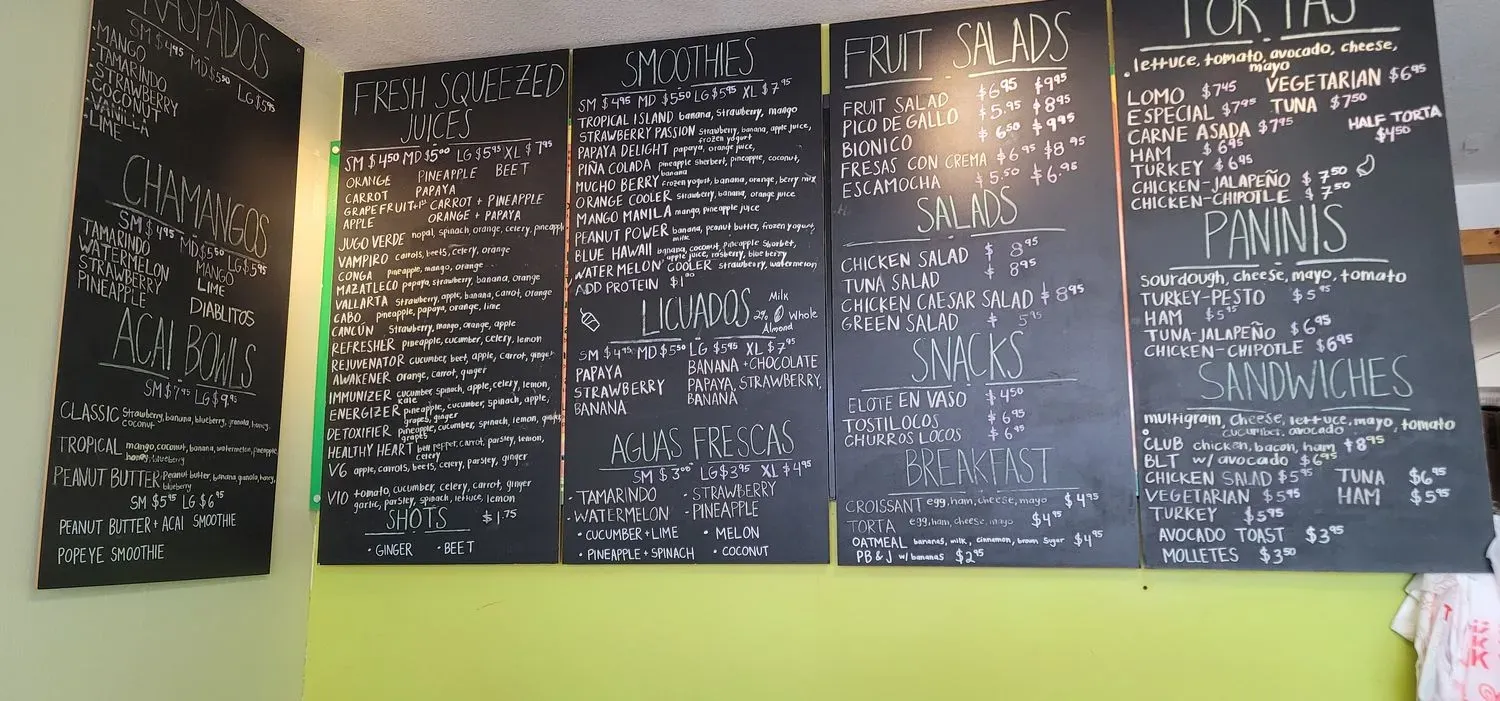 RASPADOS
SM $4.95 MD $5.50 LG $5.95
• MANGO
• TAMARINDO
• STRAWBERRY
• COCONUT
• VANILLA
• LIME
CHAMANGOS
SM $4.95 MD $5.50 LG $5.95
TAMARINDO MANGO
WATERMELON LIME
STRAWBERRY DIABLITOS
PINEAPPLE
ACAI BOWLS
SM $7.95 LG $9.95
CLASSIC strawberry, banana, blueberry, granola, honey,
coconut
TROPICAL mango, coconut, banana, watermelon, pineapple,
honey, blueberry
PEANUT BUTTER Peanut butter, banana, granola, honey,
blueberry
SM $5.95 LG $6.95
PEANUT BUTTER + ACAI SMOOTHIE
POPEYE SMOOTHIE
FRESH SQUEEZED
JUICES
SM $4.50 MD $5.00 LG $5.95 XL $7.95
ORANGE PINEAPPLE BEET
CARROT PAPAYA
GRAPEFRUIT CARROT + PINEAPPLE
APPLE ORANGE + PAPAYA
JUGO VERDE nopal, spinach, orange, celery, pineapple
VAMPIRO carrots, beets, celery, orange
CONGA pineapple, mango, orange
MAZATLECO papaya, strawberry, banana, orange
VALLARTA strawberry, apple, banana, carrot, orange
CABO pineapple, papaya, orange, lime
CANCÚN strawberry, mango, orange, apple
REFRESHER pineapple, cucumber, celery, lemon
REJUVENATOR cucumber, beet, apple, carrot, ginger
AWAKENER orange, carrot, ginger
IMMUNIZER cucumber, spinach, apple, celery, lemon,
kale
ENERGIZER pineapple, cucumber, spinach, apple,
grapes, ginger
DETOXIFIER pineapple, cucumber, spinach, lemon, ginger
grapes
HEALTHY HEART bell pepper, carrot, parsley, lemon,
celery
V6 apple, carrots, beets, celery, parsley, ginger
V10 tomato, cucumber, celery, carrot, ginger
garlic, parsley, spinach, lettuce, lemon
SHOTS $1.75
• GINGER • BEET
SMOOTHIES
SM $4.95 MD $5.50 LG $5.95 XL $7.95
TROPICAL ISLAND banana, strawberry, mango
STRAWBERRY PASSION strawberry, banana, apple juice,
frozen yogurt
PAPAYA DELIGHT papaya, orange juice,
PIÑA COLADA pineapple sherbert, pineapple, coconut,
banana
MUCHO BERRY frozen yogurt, banana, orange, berry mix
ORANGE COOLER strawberry, banana, orange juice
MANGO MANILA mango, pineapple juice
PEANUT POWER banana, peanut butter, frozen yogurt,
milk
BLUE HAWAII banana, coconut, pineapple sherbet,
apple juice, rasberry, blueberry
WATERMELON COOLER strawberry, watermelon
ADD PROTEIN $1.00
LICUADOS Milk
2% Whole
Almond
SM $4.95 MD $5.50 LG $5.95 XL $7.95
PAPAYA BANANA + CHOCOLATE
STRAWBERRY PAPAYA, STRAWBERRY,
BANANA BANANA
AGUAS FRESCAS
SM $3.00 LG $3.95 XL $4.95
- TAMARINDO - STRAWBERRY
- WATERMELON - PINEAPPLE
• CUCUMBER + LIME • MELON
• PINEAPPLE + SPINACH • COCONUT
FRUIT SALADS
FRUIT SALAD $6.95 $9.95
PICO DE GALLO $5.95 $8.95
BIONICO $6.50 $9.95
FRESAS CON CREMA $6.95 $8.95
ESCAMOCHA $5.50 $6.95
SALADS
CHICKEN SALAD $8.95
TUNA SALAD $8.95
CHICKEN CAESAR SALAD $8.95
GREEN SALAD $5.95
SNACKS
ELOTE EN VASO $4.50
TOSTILOCOS $6.95
CHURROS LOCOS $6.95
BREAKFAST
CROISSANT egg, ham, cheese, mayo $4.95
TORTA egg, ham, cheese, mayo $4.95
OATMEAL bananas, milk, cinnamon, brown sugar $4.95
PB & J w/ bananas $2.95
TORTAS
• lettuce, tomato, avocado, cheese,
mayo
LOMO $7.45 VEGETARIAN $6.95
ESPECIAL $7.95 TUNA $7.50
CARNE ASADA $7.95 HALF TORTA
HAM $6.95 $4.50
TURKEY $6.95
CHICKEN-JALAPEÑO $7.50
CHICKEN-CHIPOTLE $7.50
PANINIS
sourdough, cheese, mayo, tomato
TURKEY-PESTO $5.95
HAM $5.95
TUNA-JALAPEÑO $6.95
CHICKEN-CHIPOTLE $6.95
SANDWICHES
multigrain, cheese, lettuce, mayo, tomato
cucumber, avocado
CLUB chicken, bacon, ham $8.95
BLT w/ avocado $6.95
CHICKEN SALAD $5.95 TUNA $6.95
VEGETARIAN $5.95 HAM $5.95
TURKEY $5.95
AVOCADO TOAST $3.95
MOLLETES $3.50